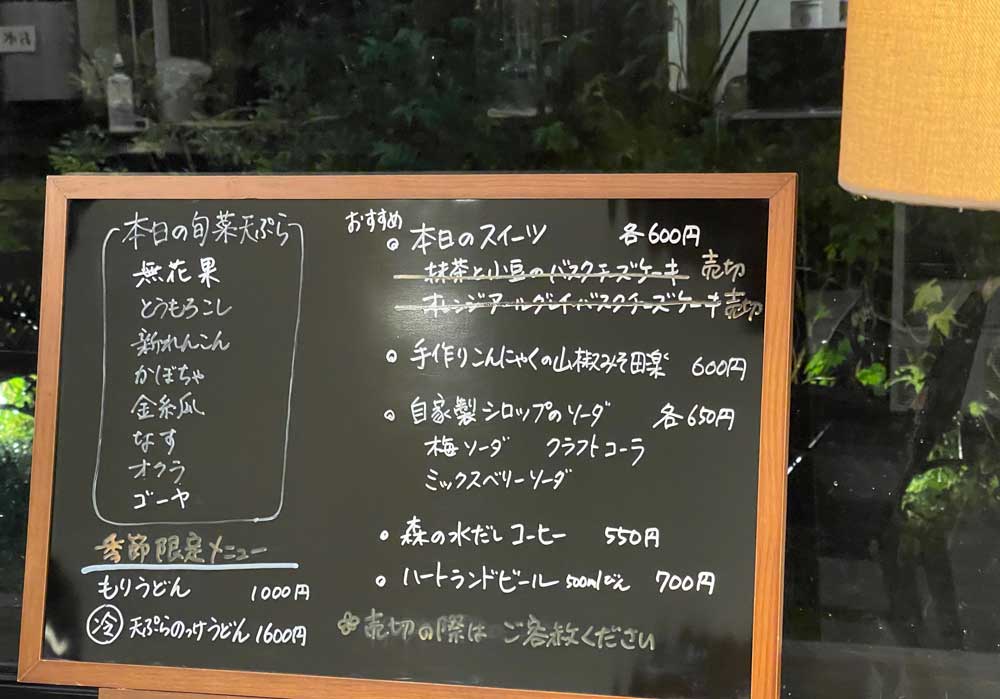 本日の旬菜天ぷら
無花果
とうもろこし
新れんこん
かぼちゃ
金糸瓜
なす
オクラ
ゴーヤ
季節限定メニュー
もりうどん 1000円
冷 天ぷらのっけうどん 1600円
おすすめ
本日のスイーツ 各600円
抹茶と小豆のバスクチーズケーキ 売切
オレンジアールグレイバスクチーズケーキ 売切
手作りこんにゃくの山椒みそ田楽 600円
自家製シロップのソーダ 各650円
梅ソーダ クラフトコーラ
ミックスベリーソーダ
森の水だしコーヒー 550円
ハートランドビール 500mlびん 700円
売切の際は ご容赦ください